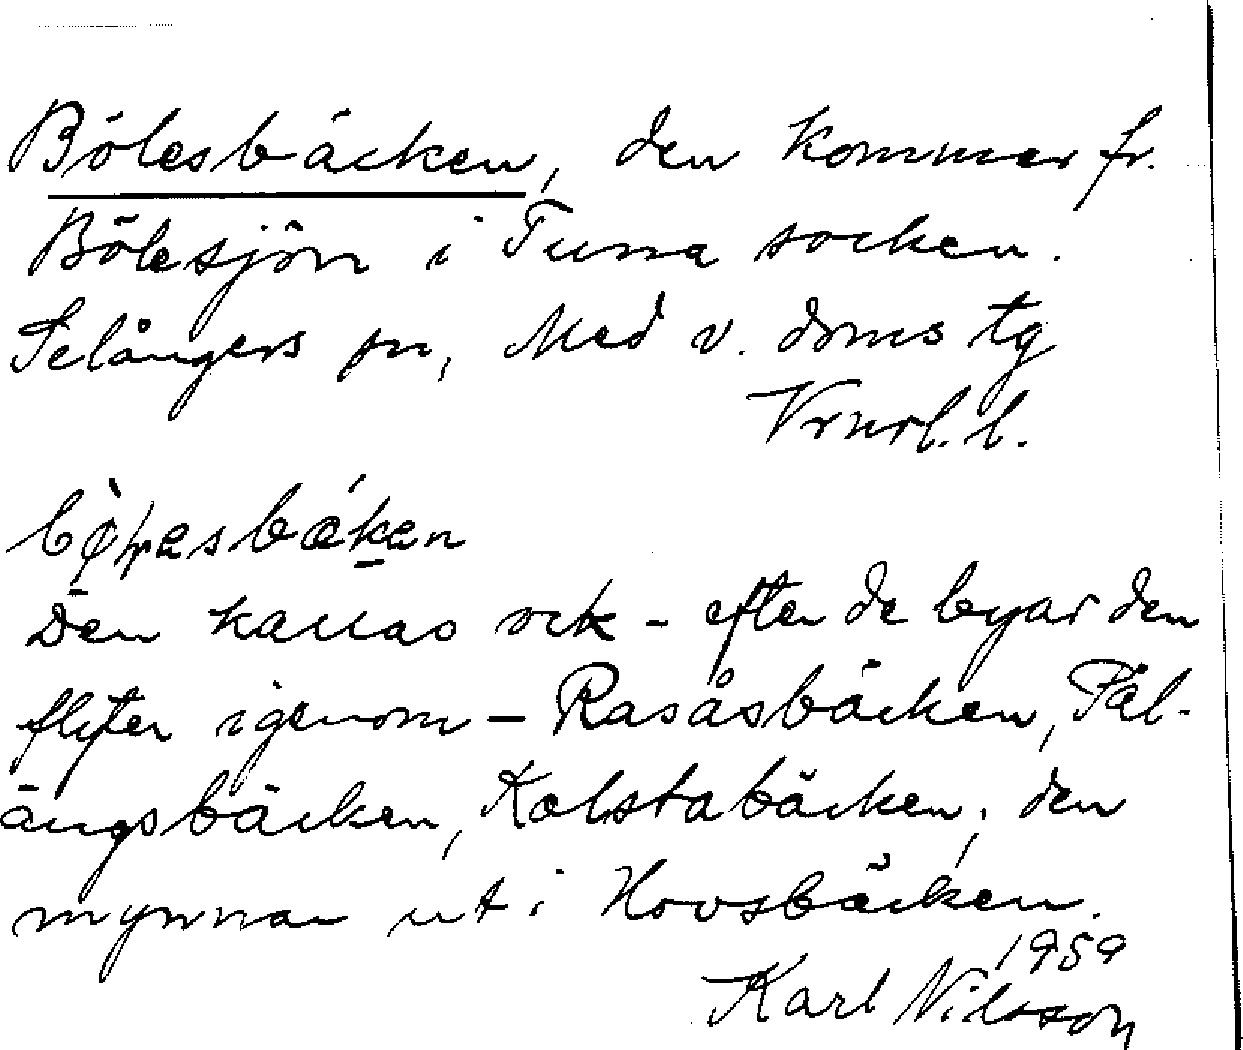 Bölesbäcken, den kommer fr.
Bölesjön i Tuna socken.
Selångers sn, Med v. doms tg
den kallas ock - efter de byar den
flyter igenom - Rasåsbäcken, Päl-
ängsbäcken, Kolstabäcken, den
mynnar ut i Hovsbäcken.
1959
Karl Nilsson